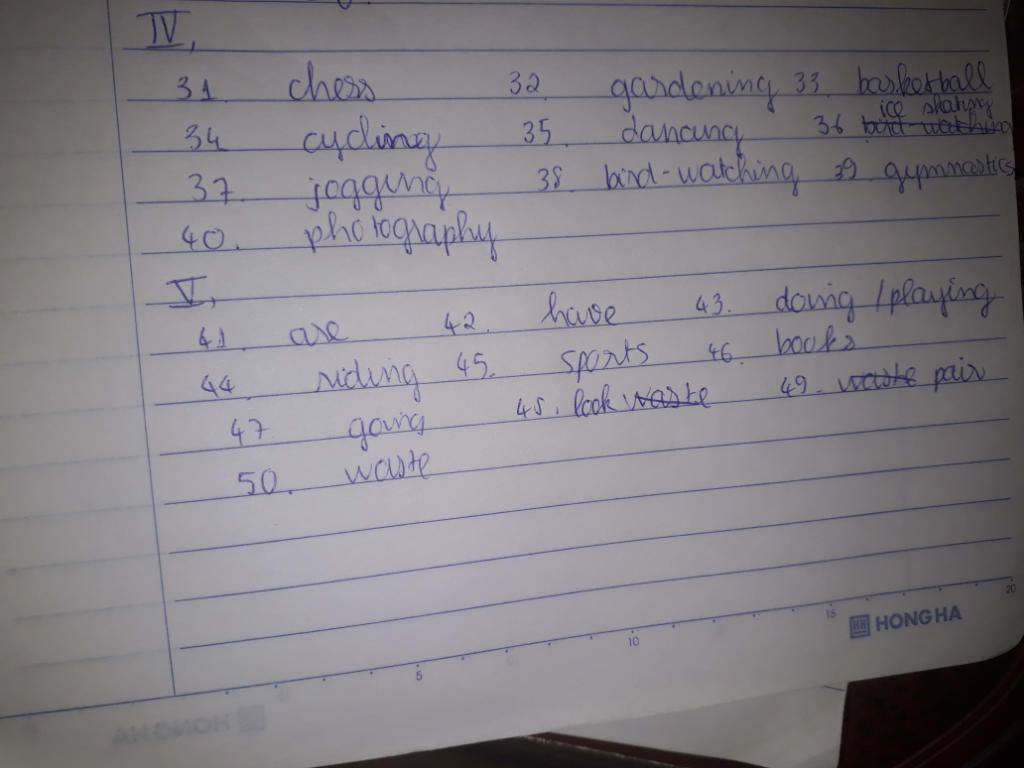 IV,
31. chess 32. gardening 33. basketball
ice skating
34 cycling 35. dancing 36 bird-watching
37. jogging 38. bird-watching 39. gymnastics
40. photography
V,
41. are 42. have 43. doing / playing
44 riding 45. sports 46. books
47 going 48. look waste 49. waste pair
50. waste
5 10 15 20
HONG HA
HONG HA